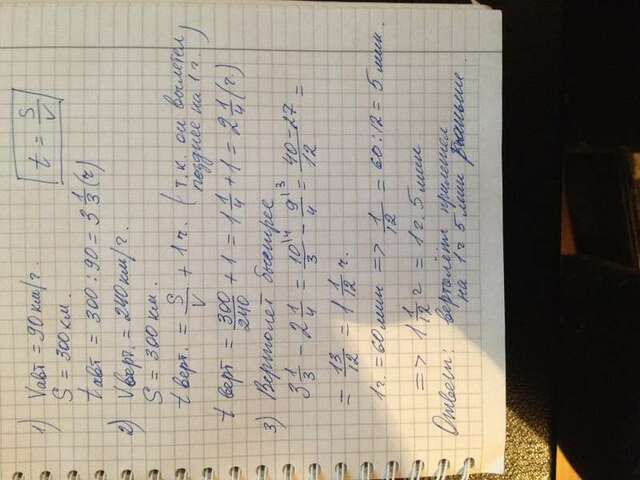 1) Vавт = 90 км/г.
t = S/V
S = 300 км.
tавт = 300 : 90 = 3 1/3 (ч)
2) Vверт. = 240 км/г.
S = 300 км.
t верт. = S/V + 1 ч. (т.к. он вылетел
позднее на 1 г.)
t верт = 300/240 + 1 = 1 1/4 + 1 = 2 1/4 (г.)
3) Вертолёт быстрее
3 1/3 - 2 1/4 = 10/3 \4 - 9/4 \3 = 40-27/12 =
= 13/12 = 1 1/12 г.
1 г. = 60 мин => 1/12 = 60 : 12 = 5 мин.
=> 1 1/12 г = 1 г. 5 мин
Ответ: вертолёт прилетел
на 1 г 5 мин раньше.